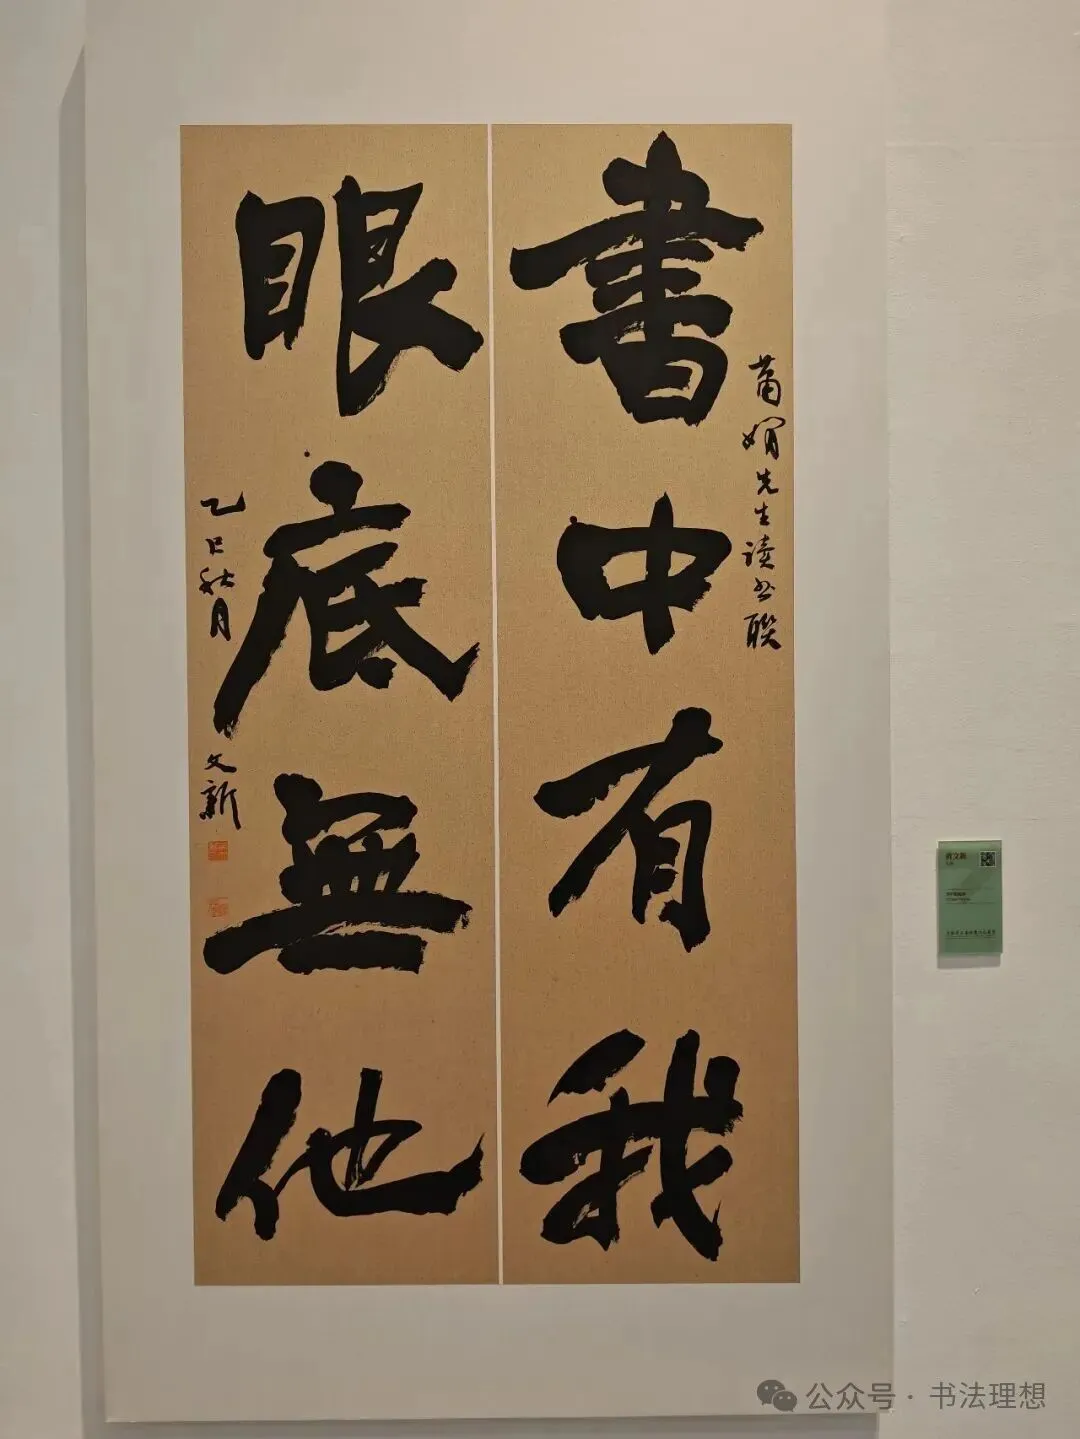 書中有我
先生读书联
眼底無他
乙巳秋月
文新
公众号·书法理想